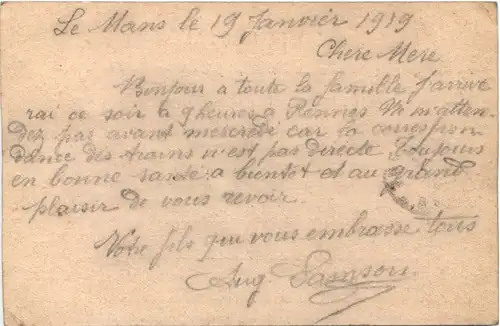 Le Mans le 19 Janvier 1919
Chere Mere
Bonjour a toute la famille j'arrive
rai ce soir a 9 heures a Rennes Ne m'atten-
dez pas avant mercredi car la correspon-
dance des trains n'est pas directe Toujours
en bonne santé a bientot et au grand
plaisir de vous revoir.
Votre fils qui vous embrasse tous
Aug. Samson